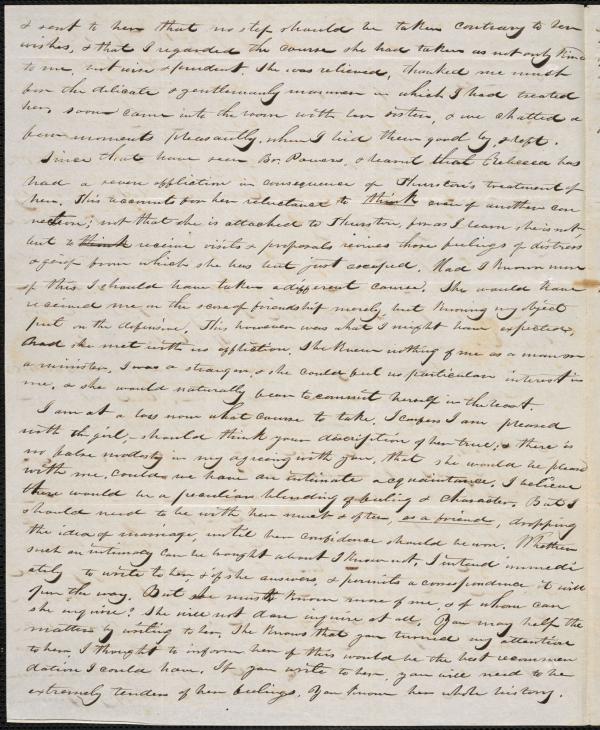 & sent to her that no step should be taken contrary to her
wishes, & that I regarded the course she had taken as not only kind
to me, but wise & prudent. She was relieved, thanked me much
for the delicate & gentlemanly manner in which I had treated
her, soon came into the room with her sister, & we chatted a
few moments pleasantly, when I bid them good by, & left.
Since that have seen Br. Powers, & learnt that Rebecca has
had a severe affliction in consequence of Thurston's treatment of
her. This accounts for her reluctance to think even of another con
nection; not that she is attached to Thurston, for as I learn she is not
but to think receive visits & proposals revives those feelings of distress
& grief from which she has but just escaped. Had I known more
of this I should have taken a different course. She would have
received me on the score of friendship merely, but knowing my object
put on the defensive. This however was what I might have expected,
had she met with no affliction. She knew nothing of me as a man or
a minister. I was a stranger, & she could feel no particular interest in
me, & she would naturally fear to commit herself in the least.
I am at a loss now what course to take. I confess I am pleased
with the girl,- should think your description of her true, & there is
no false modesty in my agreeing with you, that she would be pleased
with me, could we have an intimate acquaintance. I believe
there would be a peculiar blending of feeling & character. But I
should need to be with her much & often, as a friend, dropping
the idea of marriage, until her confidence should be won. Whether
such an intimacy can be brought about I know not. I intend immedi
ately to write to her, & if she answers, & permits a correspondence it will
open the way. But she must know more of me, & of whom can
she inquire? She will not dare inquire at all. You may help the
matter by writing to her. She knows that you turned my attention
to her. I thought to inform her of this would be the best recommen
dation I could have. If you write to her, you will need to be
extremely tender of her feelings. You know her whole history.